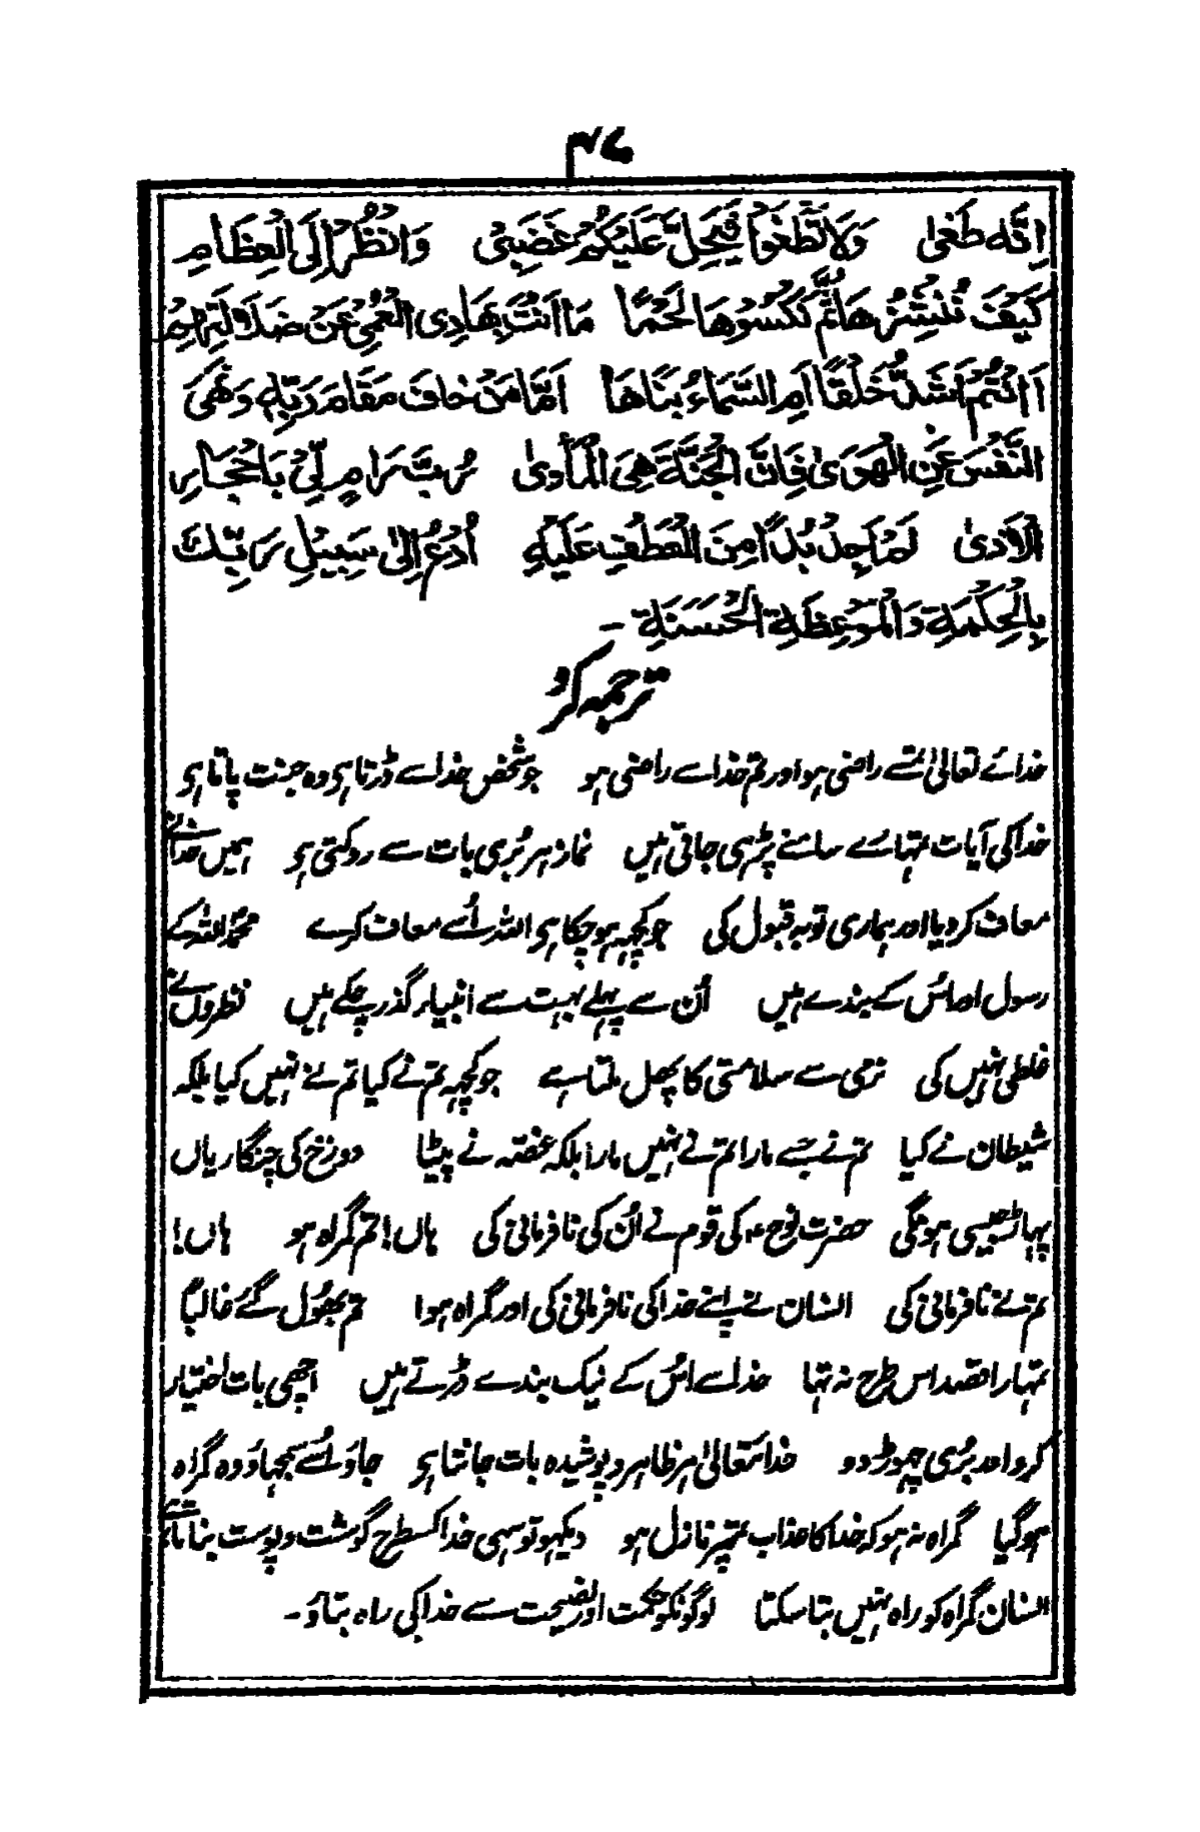 ۳۷
اِنَّهٗ طَغٰى وَلَا تَطْغَوْا فَيَحِلَّ عَلَيْكُمْ غَضَبِىْ وَانْظُرْ اِلَى الْعِظَامِ
كَيْفَ نُنْشِزُهَا ثُمَّ نَكْسُوْهَا لَحْمًا مَا اَنْتَ بِهَادِى الْعُمْىِ عَنْ ضَلَالَتِهِمْ
أَاَنْتُمْ اَشَدُّ خَلْقًا اَمِ السَّمَاءُ بَنَاهَا اَمَّا مَنْ خَافَ مَقَامَ رَبِّهٖ وَنَهَى
النَّفْسَ عَنِ الْهَوٰى فَاِنَّ الْجَنَّةَ هِىَ الْمَأْوٰى رُبَّ رَامٍ لِّىْ بِاَحْجَارِ
الْاَذٰى لَمْ اَجِدْ بُدًّا مِنَ الْعَطْفِ عَلَيْهِ اُدْعُ اِلٰى سَبِيْلِ رَبِّكَ
بِالْحِكْمَةِ وَالْمَوْعِظَةِ الْحَسَنَةِ -
ترجمہ کرو
خدائے تعالیٰ تمسے راضی ہو اور تم خدا سے راضی ہو جو شخص خدا سے ڈرتا ہی وہ جنت پاتا ہی
خدا کی آیات تمہارے سامنے پڑہی جاتی ہیں نماز ہر بُری بات سے روکتی ہی ہمیں خدا نے
معاف کر دیا اور ہماری توبہ قبول کی جو کچہہ ہو چکا ہی اللہ اُسے معاف کرے محمدؐ اللہ کے
رسول اور اُس کے بندے ہیں اُن سے پہلے بہت سے انبیاء گذر چکے ہیں نظر والی نے
غلطی نہیں کی نرمی سے سلامتی کا پھل ملتا ہے جو کچہہ تم نے کیا تم نے نہیں کیا بلکہ
شیطان نے کیا تم نے جسے مارا تم نے نہیں مارا بلکہ غصّہ نے پیٹا دوزخ کی چنگاریاں
پہاڑ جیسی ہونگی حضرت نوح ؑ کی قوم نے اُن کی نافرمانی کی ہاں! تم گمراہ ہو ہاں!
تم نے نافرمانی کی انسان نے اپنے خدا کی نافرمانی کی اور گمراہ ہوا تم بھول گئے غالباً
تمہارا قصد اس طرح نہ تھا خدا سے اُس کے نیک بندے ڈرتے ہیں اچھی بات اختیار
کرو اور بُری چہوڑ دو خدا تعالیٰ ہر ظاہر و پوشیدہ بات جانتا ہی جاؤ اُسے سمجہاؤ وہ گمراہ
ہو گیا گمراہ نہ ہو کہ خدا کا عذاب تمپر نازل ہو دیکہو تو سہی خدا کسطرح گوشت و پوست بناتا ہے
انسان گمراہ کو راہ نہیں بتا سکتا لوگونکو حکمت اور نصیحت سے خدا کی راہ بتاؤ -